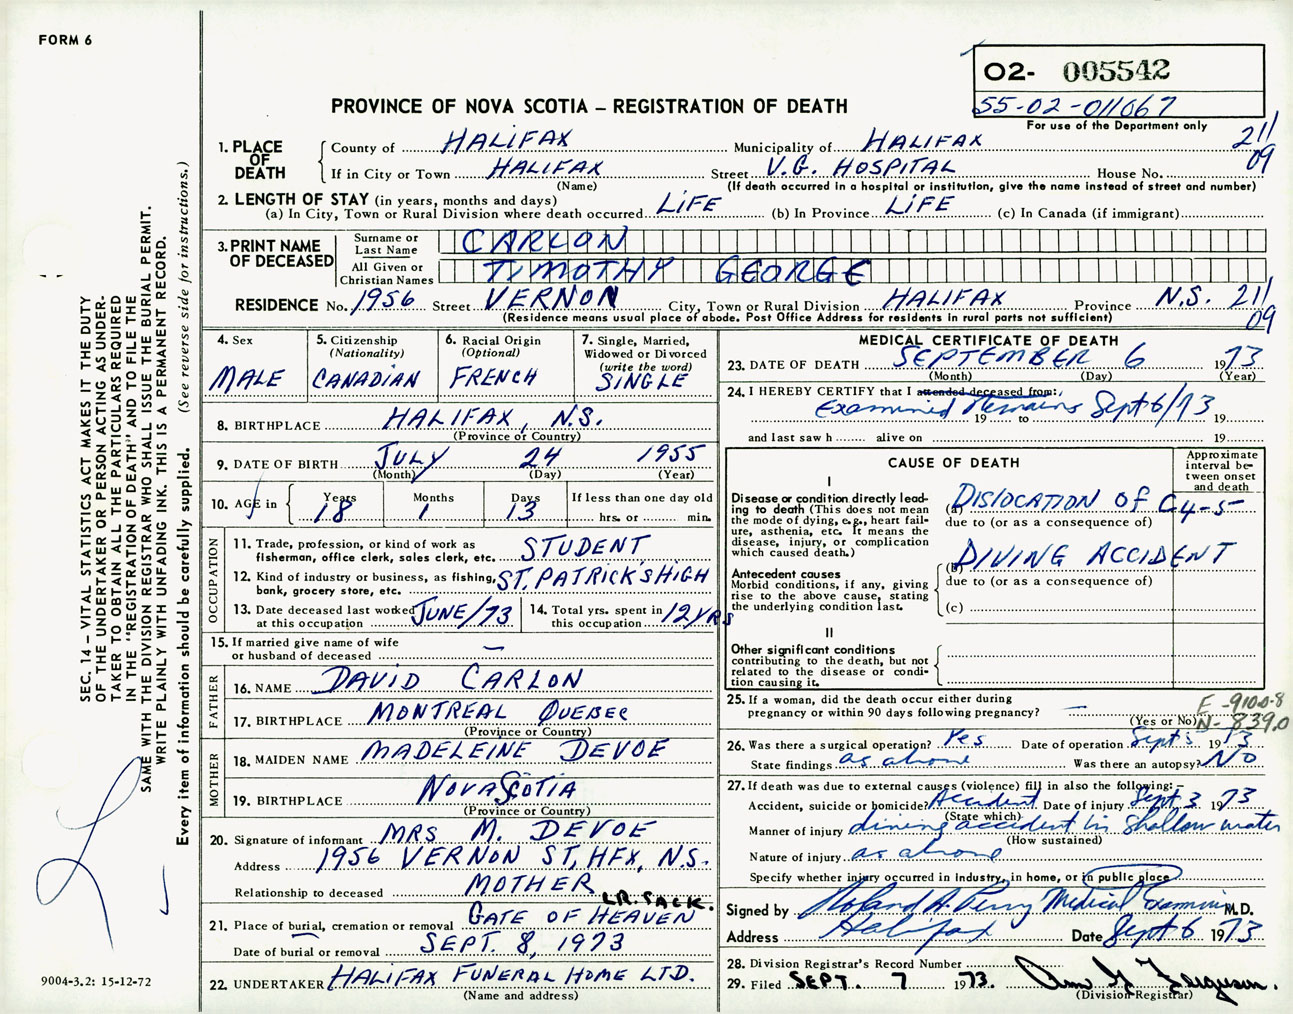 FORM 6
O2- 005542
55-02-011067
For use of the Department only
PROVINCE OF NOVA SCOTIA – REGISTRATION OF DEATH
1. PLACE OF DEATH
County of HALIFAX Municipality of HALIFAX 211
If in City or Town HALIFAX Street V.G. HOSPITAL House No. 09
(Name) (If death occurred in a hospital or institution, give the name instead of street and number)
2. LENGTH OF STAY (in years, months and days)
(a) In City, Town or Rural Division where death occurred LIFE (b) In Province LIFE (c) In Canada (if immigrant)
3. PRINT NAME OF DECEASED
Surname or Last Name CARLON
All Given or Christian Names TIMOTHY GEORGE
RESIDENCE No. 1956 Street VERNON City, Town or Rural Division HALIFAX Province N.S. 211
(Residence means usual place of abode. Post Office Address for residents in rural parts not sufficient) 09
4. Sex MALE
5. Citizenship (Nationality) CANADIAN
6. Racial Origin (Optional) FRENCH
7. Single, Married, Widowed or Divorced (write the word) SINGLE
8. BIRTHPLACE HALIFAX, N.S.
(Province or Country)
9. DATE OF BIRTH JULY 24 1955
(Month) (Day) (Year)
10. AGE in Years 18 Months 1 Days 13 If less than one day old
hrs. or min.
OCCUPATION
11. Trade, profession, or kind of work as fisherman, office clerk, sales clerk, etc. STUDENT
12. Kind of industry or business, as fishing, bank, grocery store, etc. ST. PATRICK'S HIGH
13. Date deceased last worked at this occupation JUNE/73
14. Total yrs. spent in this occupation 12 YRS
15. If married give name of wife or husband of deceased —
FATHER
16. NAME DAVID CARLON
17. BIRTHPLACE MONTREAL QUEBEC
(Province or Country)
MOTHER
18. MAIDEN NAME MADELEINE DEVOE
19. BIRTHPLACE NOVA SCOTIA
(Province or Country)
20. Signature of informant MRS M. DEVOE
Address 1956 VERNON ST, HFX, N.S.
Relationship to deceased MOTHER
LR. SACK.
21. Place of burial, cremation or removal GATE OF HEAVEN
Date of burial or removal SEPT. 8, 1973
22. UNDERTAKER HALIFAX FUNERAL HOME LTD.
(Name and address)
MEDICAL CERTIFICATE OF DEATH
23. DATE OF DEATH SEPTEMBER 6 1973
(Month) (Day) (Year)
24. I HEREBY CERTIFY that I attended deceased from:
Examined Remains Sept 6/73
19 to 19
and last saw h alive on 19
CAUSE OF DEATH
Approximate interval between onset and death
I
Disease or condition directly leading to death (This does not mean the mode of dying, e.g., heart failure, asthenia, etc. It means the disease, injury, or complication which caused death.)
(a) DISLOCATION OF C4-5
due to (or as a consequence of)
(b) DIVING ACCIDENT
due to (or as a consequence of)
(c)
Antecedent causes
Morbid conditions, if any, giving rise to the above cause, stating the underlying condition last.
II
Other significant conditions
contributing to the death, but not related to the disease or condition causing it.
25. If a woman, did the death occur either during pregnancy or within 90 days following pregnancy? —
(Yes or No)
E-9100-8
N-839.0
26. Was there a surgical operation? Yes Date of operation Sept 3 1973
State findings as above Was there an autopsy? No
27. If death was due to external causes (violence) fill in also the following:
Accident, suicide or homicide? Accident Date of injury Sept. 3 1973
(State which)
Manner of injury diving accident in shallow water
(How sustained)
Nature of injury as above
Specify whether injury occurred in industry, in home, or in public place
Signed by Roland A. Perry Medical Examiner M.D.
Address Halifax Date Sept 6 1973
28. Division Registrar's Record Number
29. Filed SEPT. 7 1973.
(Division Registrar)
SEC. 14 – VITAL STATISTICS ACT MAKES IT THE DUTY
OF THE UNDERTAKER OR PERSON ACTING AS UNDER-
TAKER TO OBTAIN ALL THE PARTICULARS REQUIRED
IN THE "REGISTRATION OF DEATH" AND TO FILE THE
SAME WITH THE DIVISION REGISTRAR WHO SHALL ISSUE THE BURIAL PERMIT.
WRITE PLAINLY WITH UNFADING INK. THIS IS A PERMANENT RECORD.
Every item of information should be carefully supplied. (See reverse side for instructions.)
9004-3.2: 15-12-72